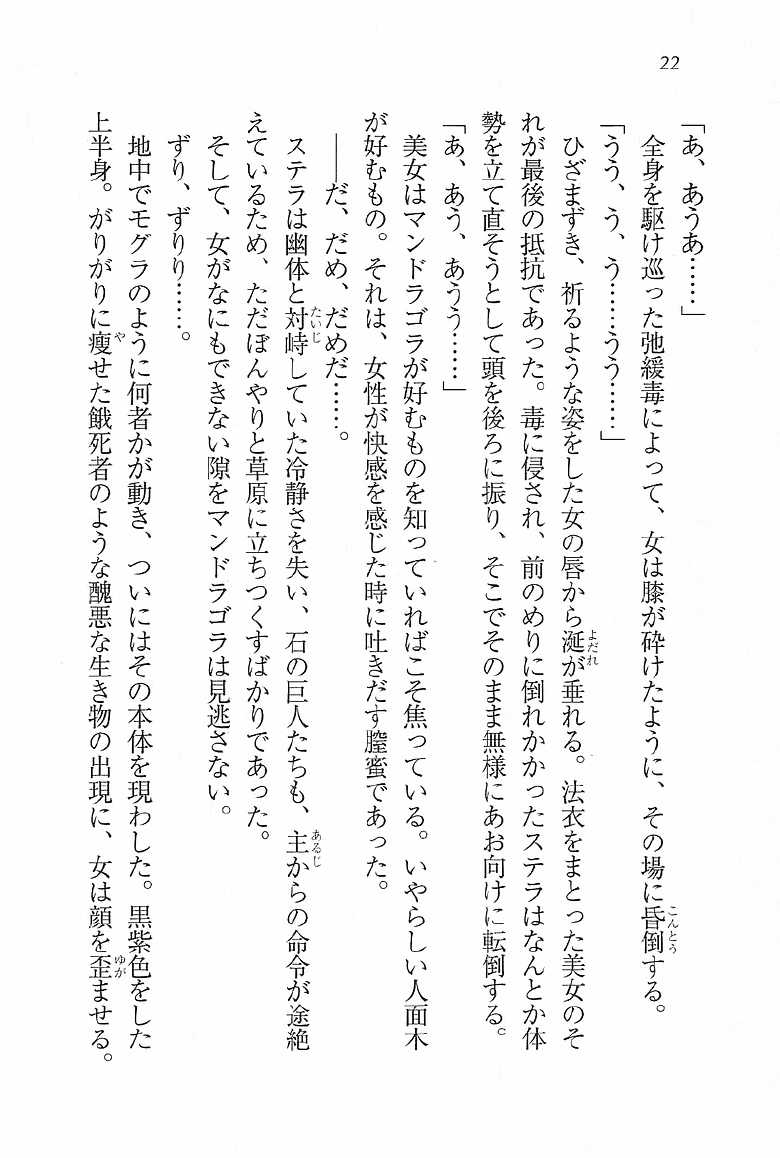 22
「あ、あうあ……」
全身を駆け巡った弛緩毒によって、女は膝が砕けたように、その場に昏倒する。
「うう、う、う……うう……」
ひざまずき、祈るような姿をした女の唇から涎が垂れる。法衣をまとった美女のそ
れが最後の抵抗であった。毒に侵され、前のめりに倒れかかったステラはなんとか体
勢を立て直そうとして頭を後ろに振り、そこでそのまま無様にあお向けに転倒する。
「あ、あう、あうう……」
美女はマンドラゴラが好むものを知っていればこそ焦っている。いやらしい人面木
が好むもの。それは、女性が快感を感じた時に吐きだす膣蜜であった。
――だ、だめ、だめだ……。
ステラは幽体と対峙していた冷静さを失い、石の巨人たちも、主からの命令が途絶
えているため、ただぼんやりと草原に立ちつくすばかりであった。
そして、女がなにもできない隙をマンドラゴラは見逃さない。
ずり、ずりり……。
地中でモグラのように何者かが動き、ついにはその本体を現わした。黒紫色をした
上半身。がりがりに痩せた餓死者のような醜悪な生き物の出現に、女は顔を歪ませる。
よだれ
こんとう
たいじ
あるじ
や
ゆが